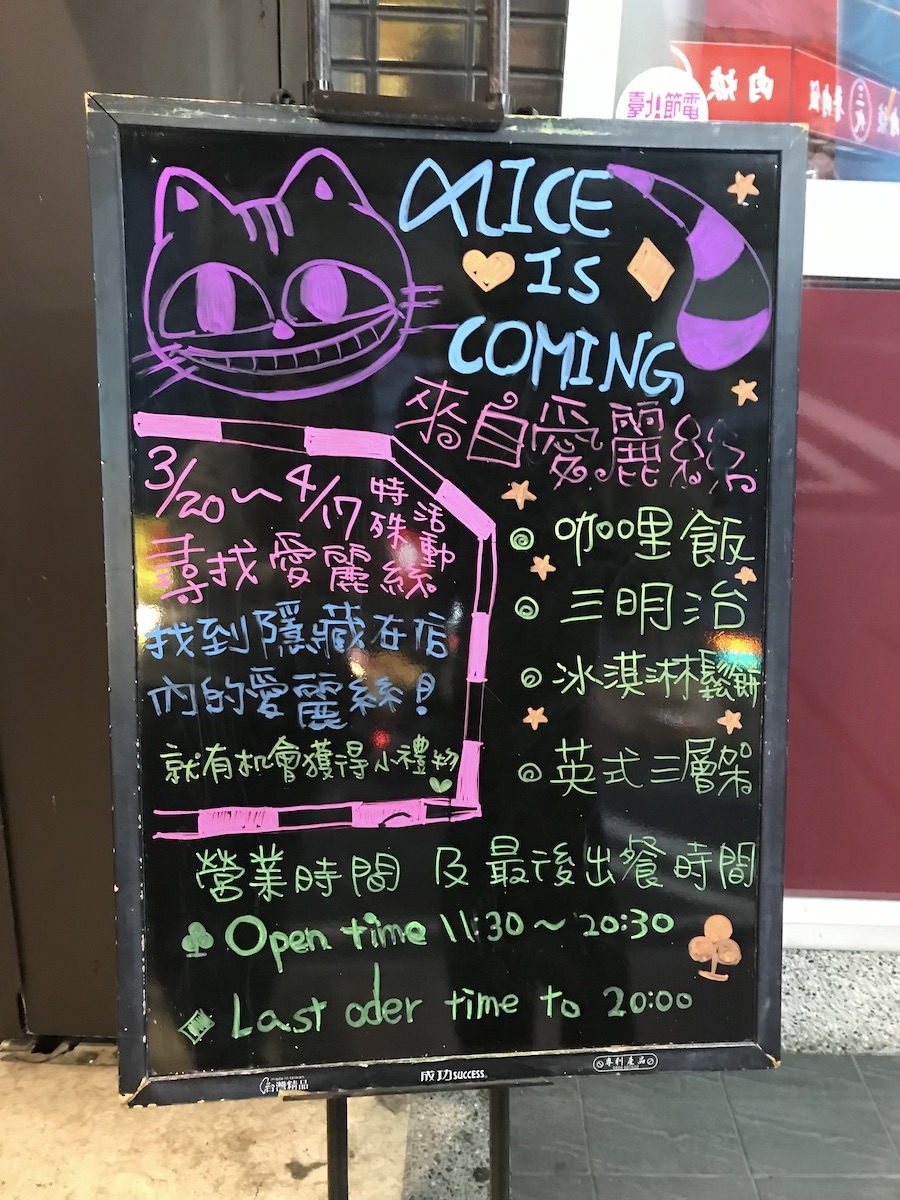 臺北!節電
ALICE
IS
COMING
來自愛麗絲
3/20～4/17 特殊活動
尋找愛麗絲
找到隱藏在店
內的愛麗絲!
就有机會獲得小禮物
咖哩飯
三明治
冰淇淋鬆餅
英式三層架
營業時間 及最後出餐時間
Open time 11:30～20:30
Last oder time to 20:00
台灣精品
成功SUCCESS
專利產品